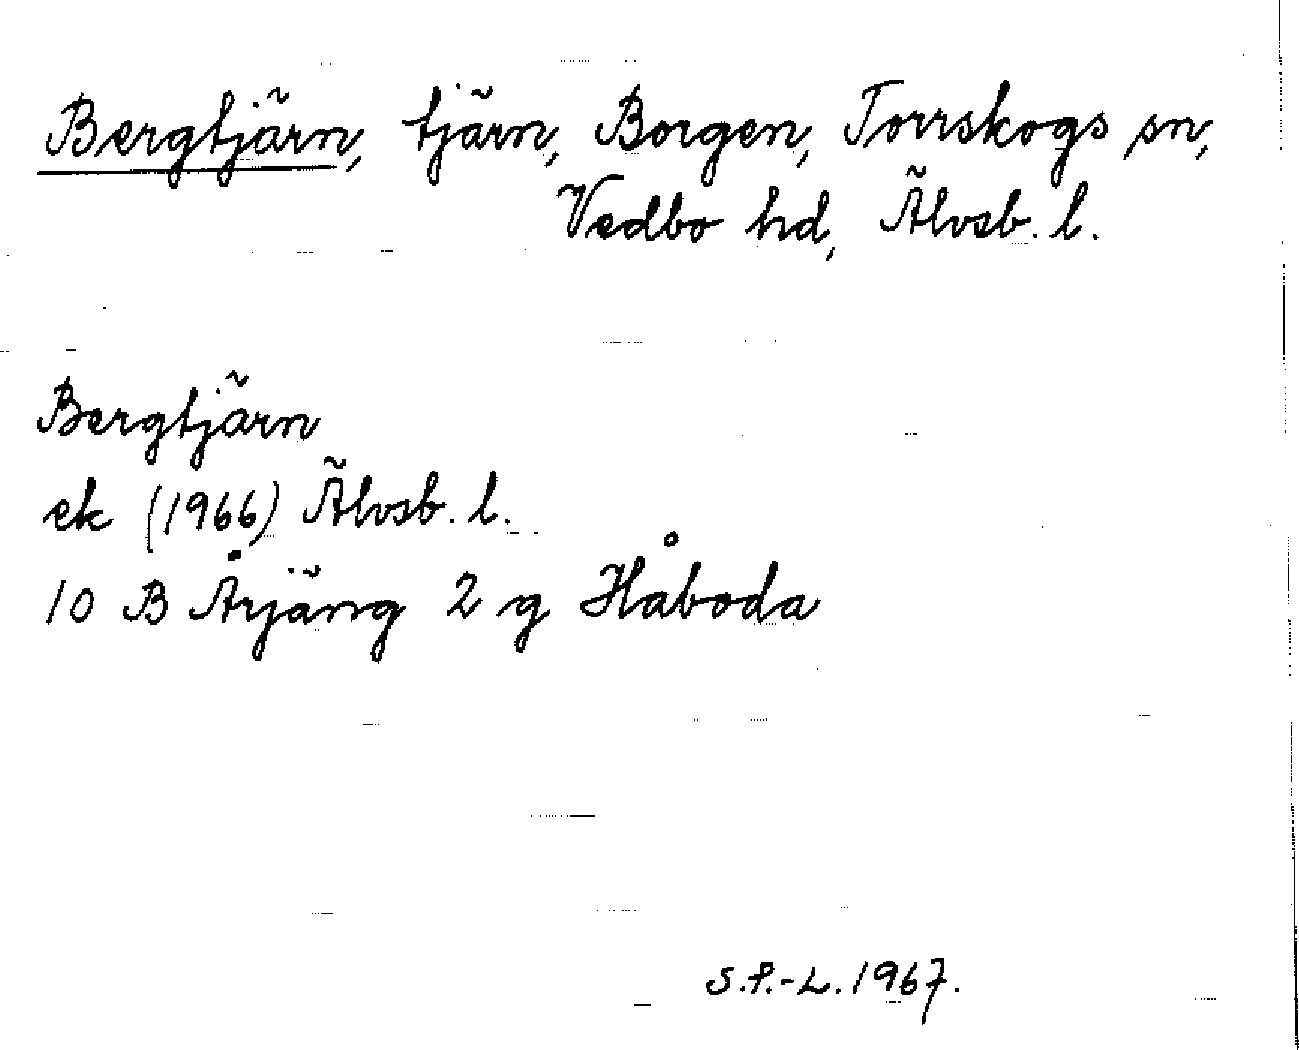 Bergtjärn, tjärn, Borgen, Torrskogs sn,
Vedbo hd, Älvsb. l.
Bergtjärn
ek (1966) Älvsb. l.
10 B Årjäng 2 g Håboda
S.P.-L. 1967.